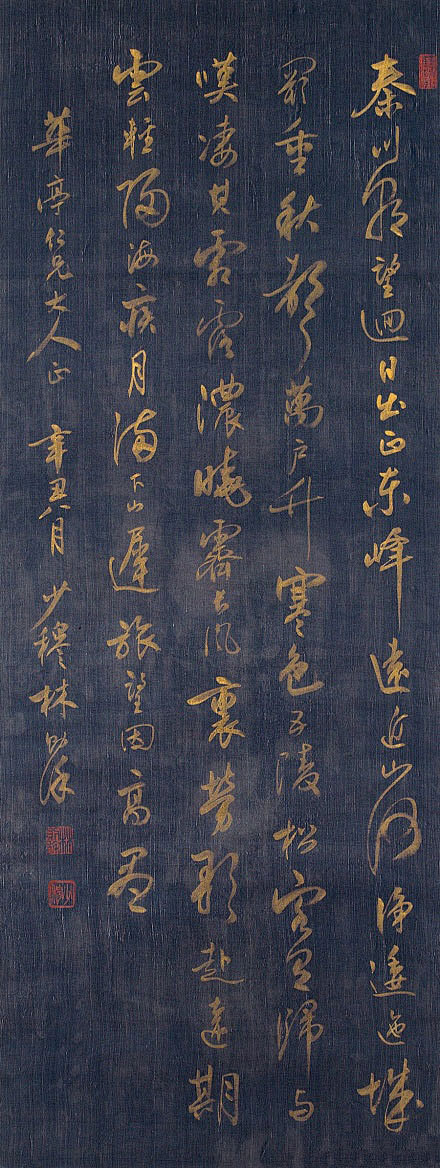 秦川朝望迥日出正東峰遠近山河淨逶迤城
闕重秋聲萬戶竹寒色五陵松客有歸與
嘆凄其霜露濃曉霽長風裏勞歌赴遠期
雲輕歸海疾月滿下山遲旅望因高盡
華亭仁兄大人正 辛丑八月 少穆林則徐